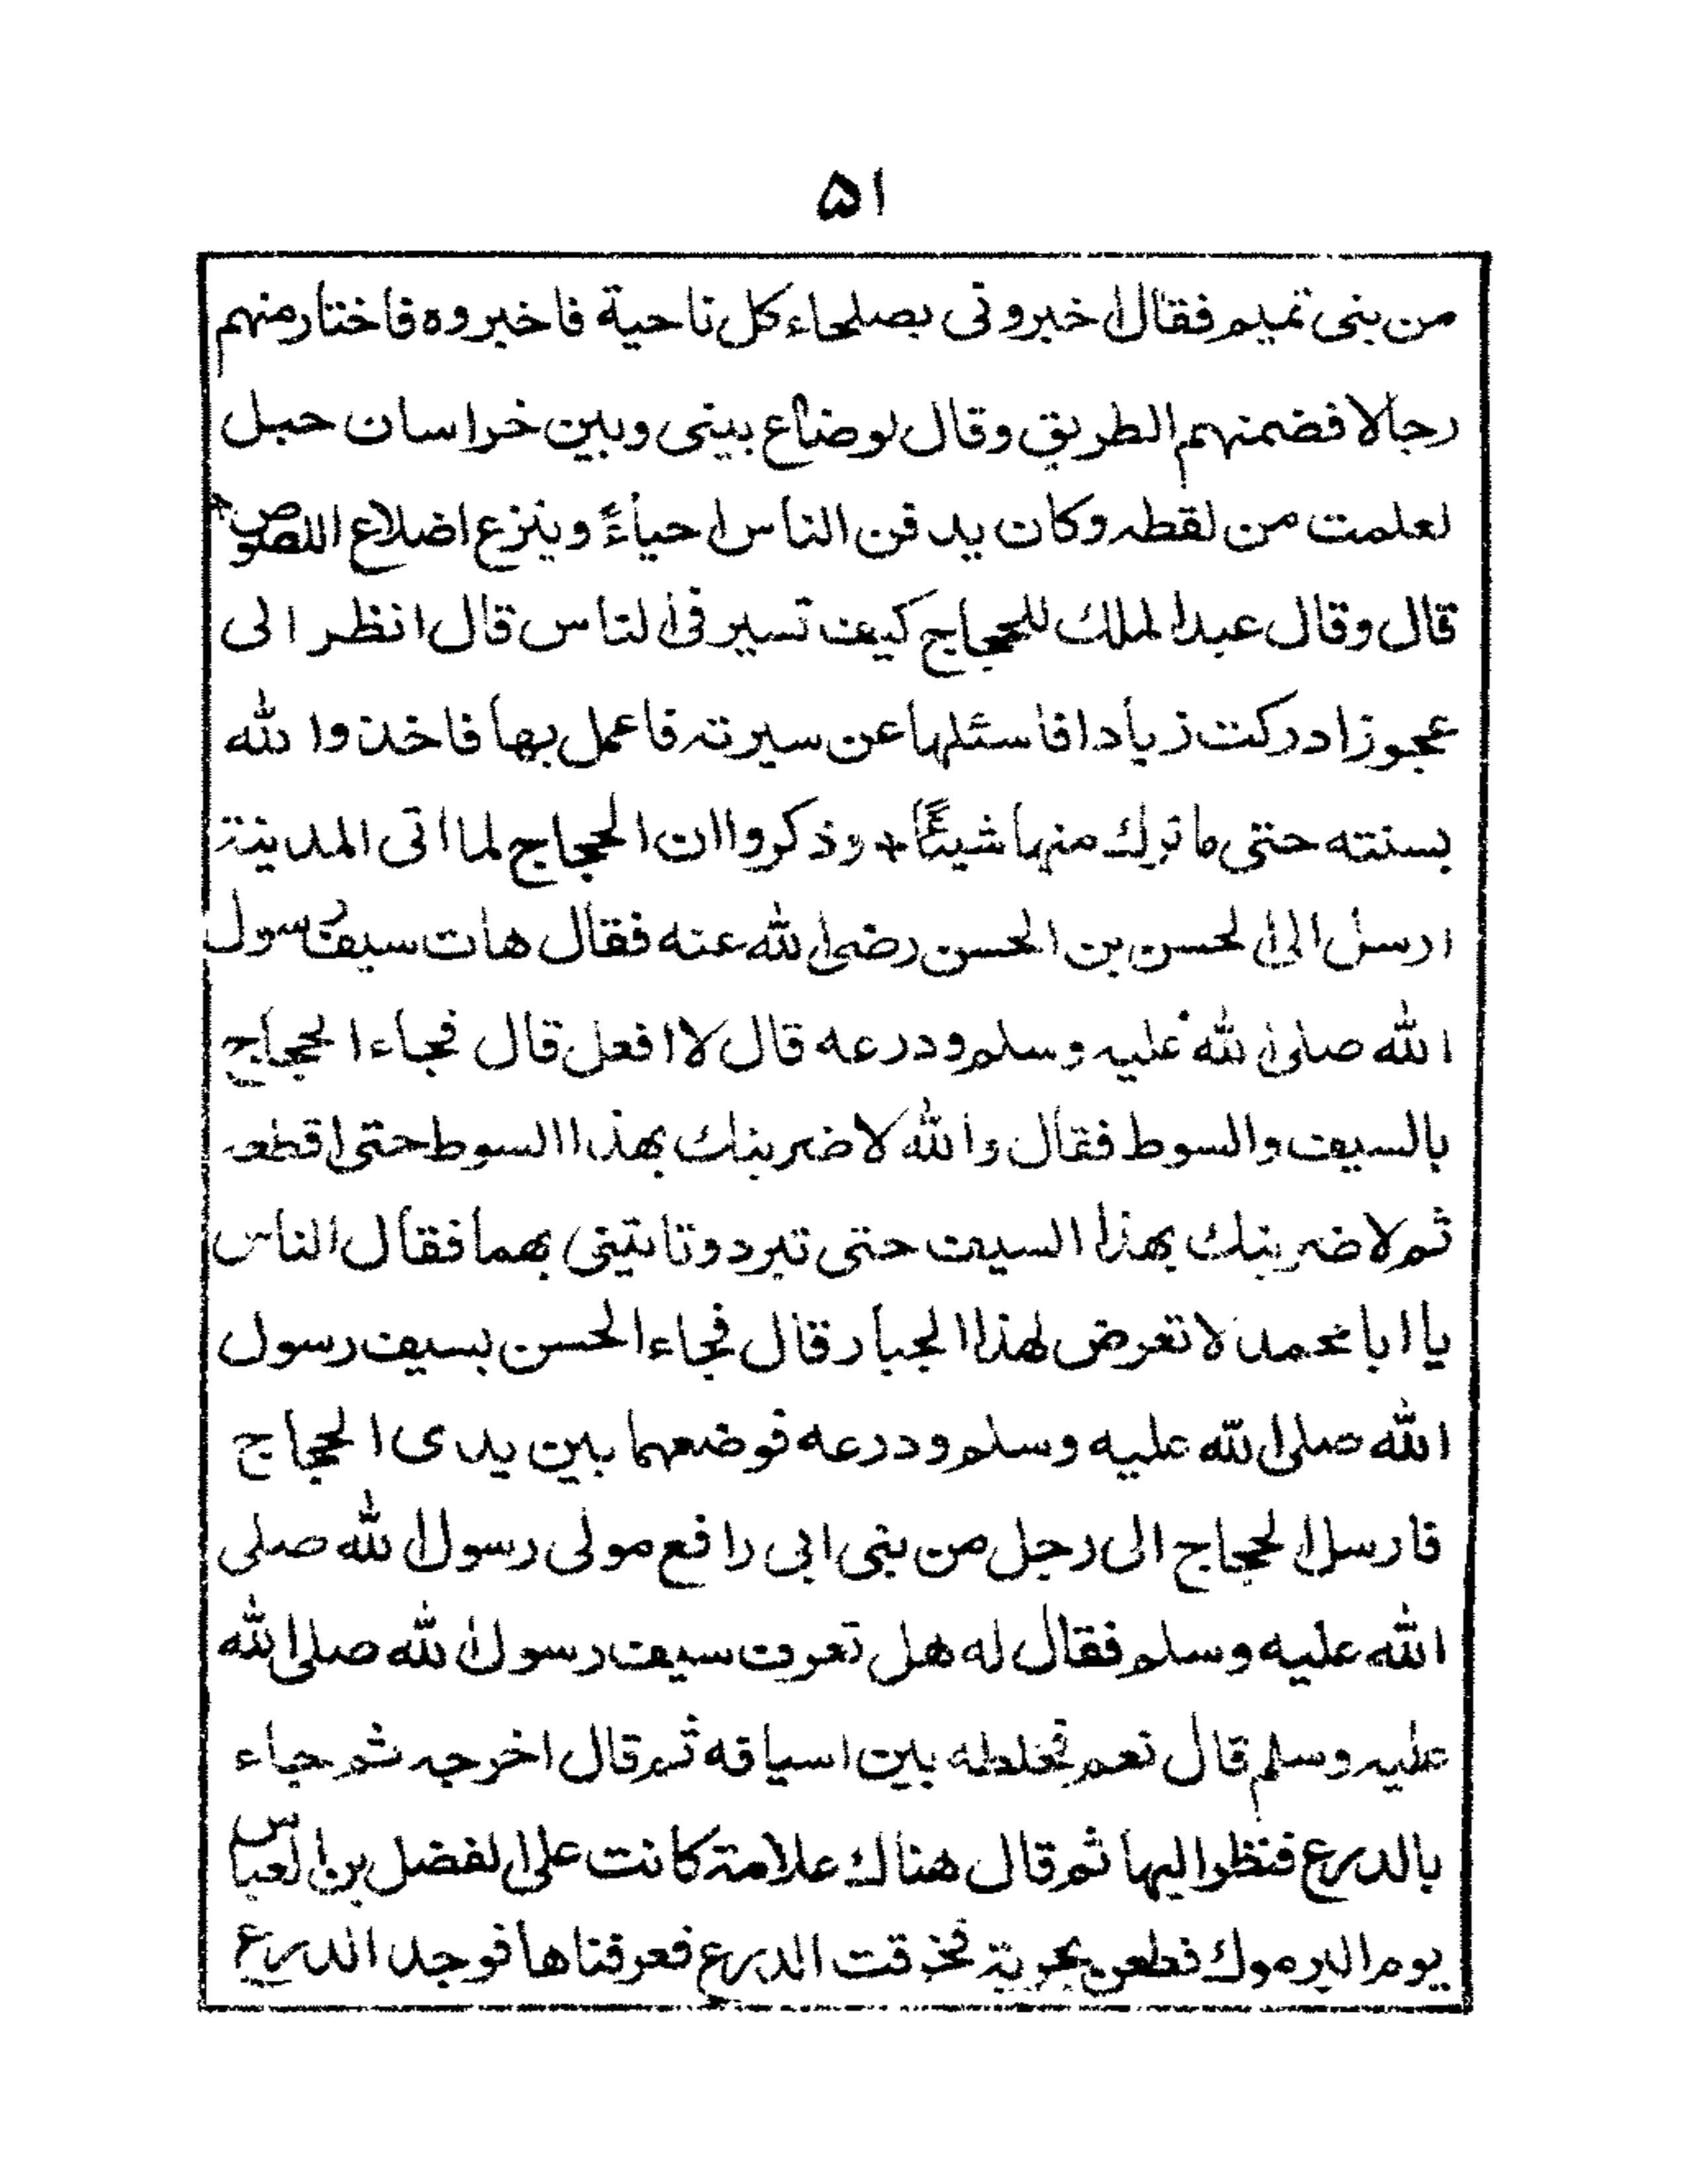 ۵۱
من بنى تميم فقال اخبرونى بصلحاء كل ناحية فاخبروه فاختار منهم
رجالا فضمنهم الطريق وقال لو ضاع بينى وبين خراسان حبل
لعلمت من لقطه وكان يدفن الناس احياءً وينزع اضلاع اللصوص +
قال وقال عبد الملك للحجاج كيف تسير فى الناس قال انظر الى
عجوز ادركت زيادا فاسئلها عن سيرته فاعمل بها فاخذ والله
بسنته حتى ما ترك منها شيئًا + وذكروا ان الحجاج لما اتى المدينة
ارسل الى الحسن بن الحسن رضى الله عنه فقال هات سيف رسول
الله صلى الله عليه وسلم ودرعه قال لا افعل قال فجاء الحجاج
بالسيف والسوط فقال والله لاضربنك بهذا السوط حتى اقطعه
ثم لاضربنك بهذا السيف حتى تبرد وتاتينى بهما فقال الناس
يا ابا محمد لا تعرض لهذا الجبار قال فجاء الحسن بسيف رسول
الله صلى الله عليه وسلم ودرعه فوضعهما بين يدى الحجاج
فارسل الحجاج الى رجل من بنى ابى رافع مولى رسول الله صلى
الله عليه وسلم فقال له هل تعرف سيف رسول الله صلى الله
عليه وسلم قال نعم فخلطه بين اسيافه ثم قال اخرجه ثم جاء
بالدرع فنظر اليها ثم قال هناك علامة كانت على الفضل بن العباس
يوم اليرموك فطعن بحربة فخرقت الدرع فعرفناها فوجد الدرع